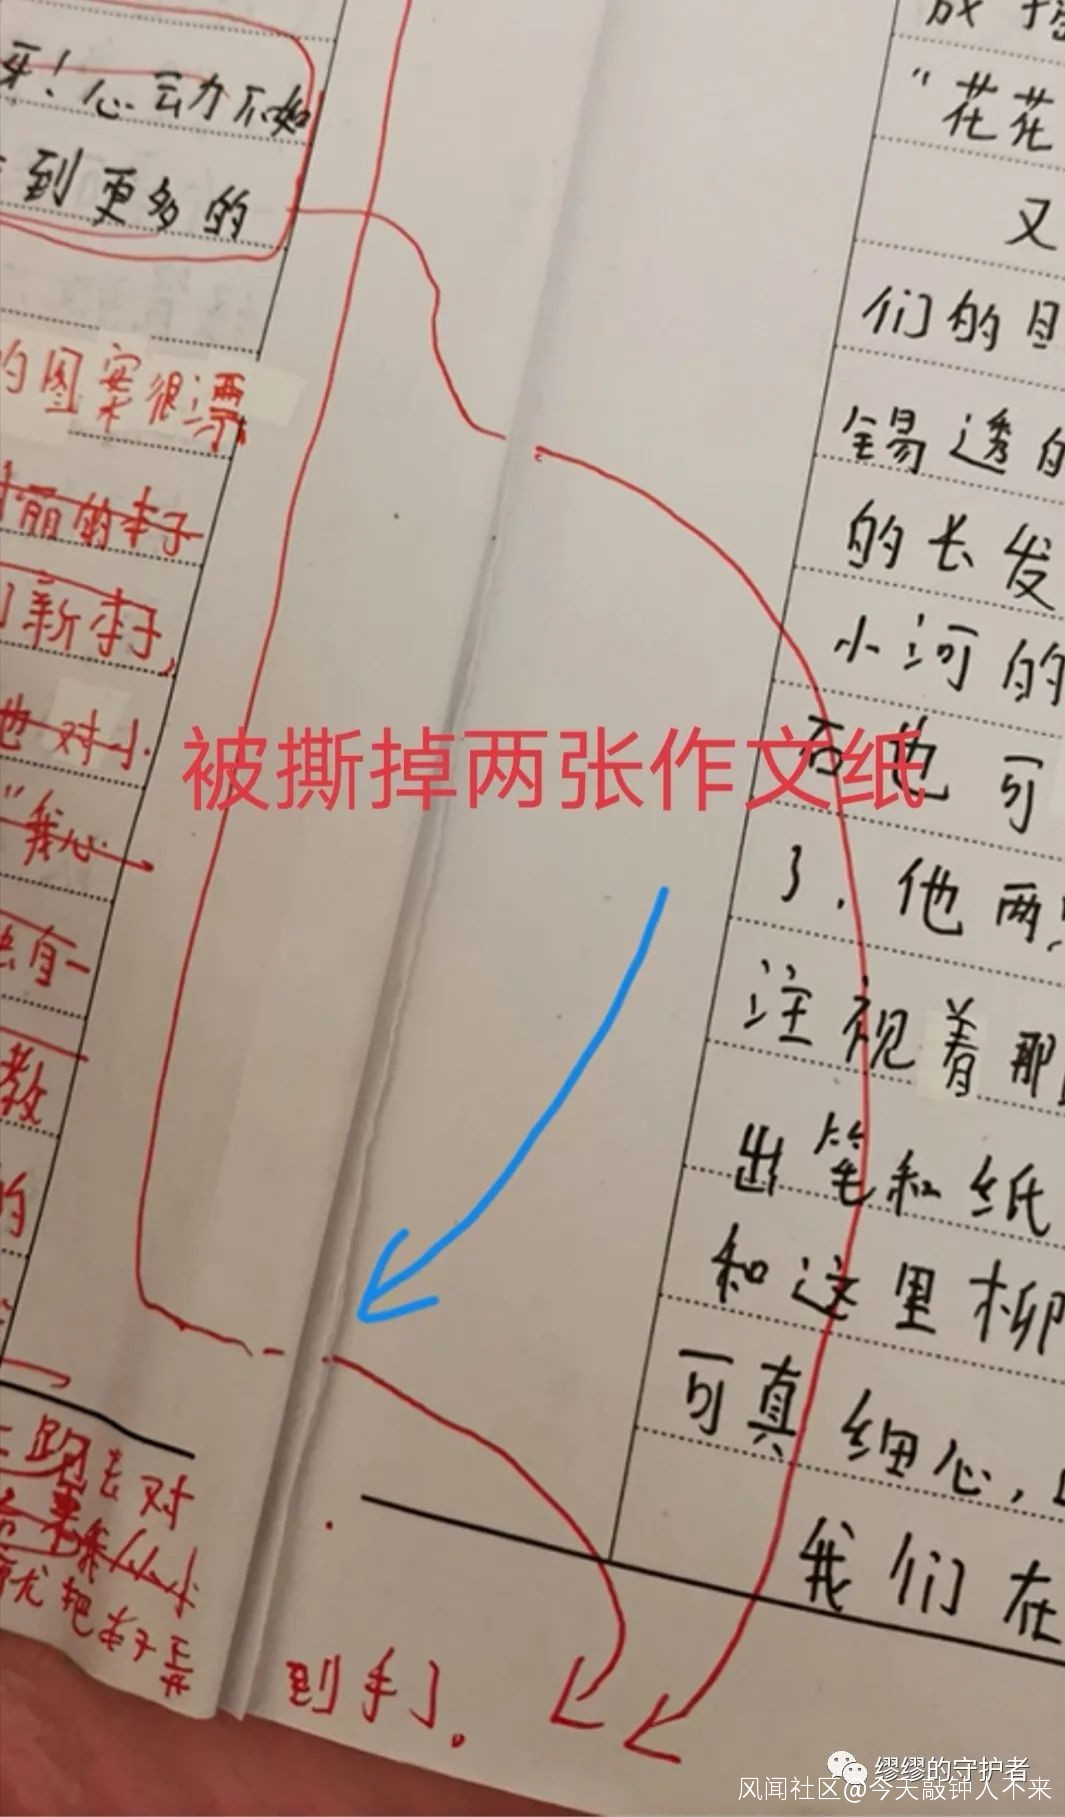 牙！心动不如
到更多的
的图案很漂
丽的李子
新李子，
他对小
“我心
有一
教
的
跑去对
就把李子弄
到手了。
被撕掉两张作文纸
“花花
又
们的目
锡透的
的长发
小河的
石也可
了，他两
注视着那
出笔和纸
和这里柳
可真细心，
我们在
缪缪的守护者
风闻社区@今天敲钟人不来